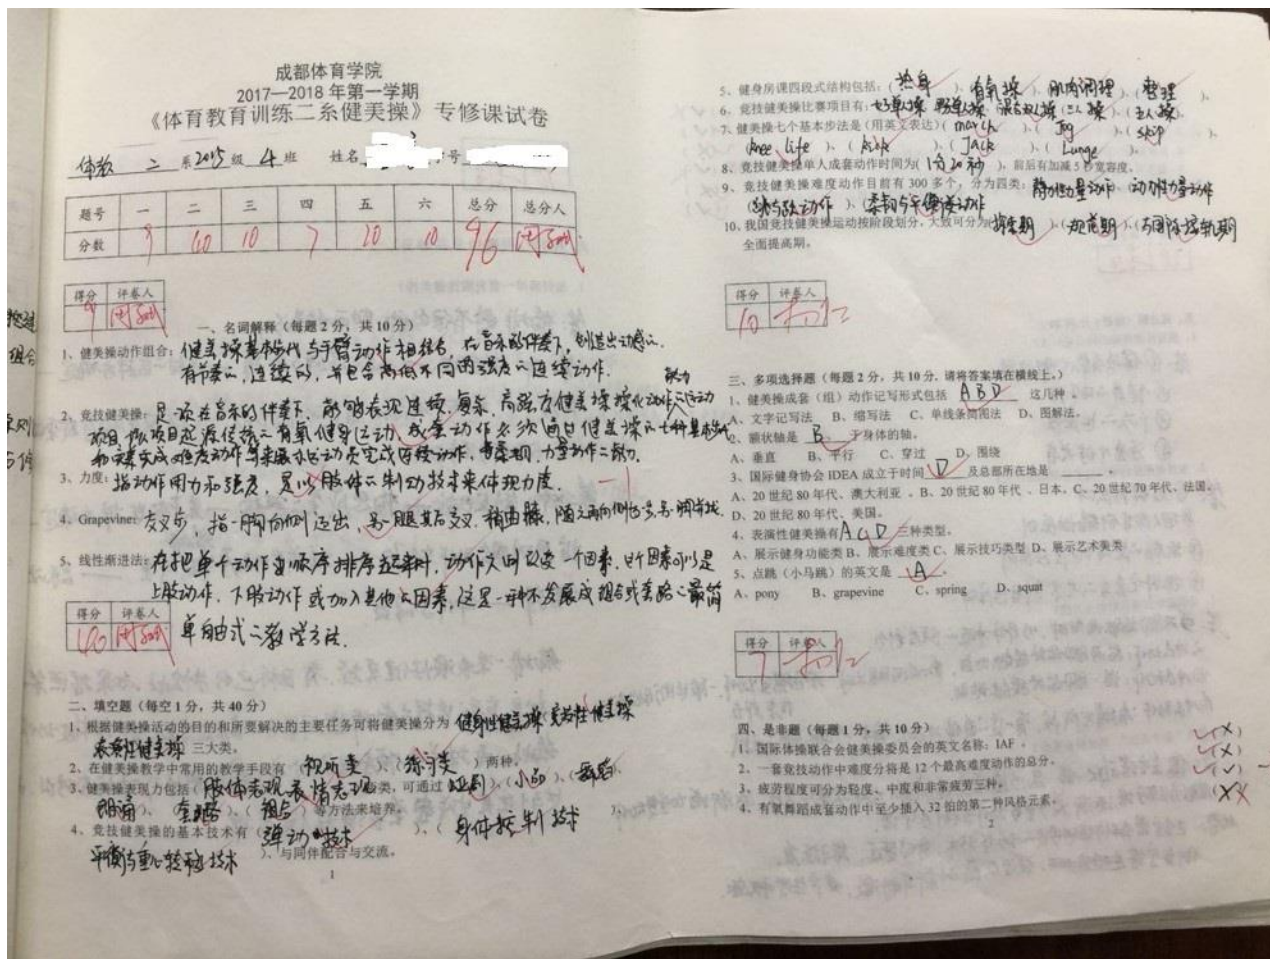 成都体育学院
2017—2018 年第一学期
《体育教育训练二系健美操》专修课试卷
体教 二 系 2015 级 4 班 姓名 号
题号 一 二 三 四 五 六 总分 总分人
分数 9 40 10 7 20 10 96
得分 评卷人
9
一、名词解释（每题 2 分，共 10 分）
1、健美操动作组合：健美操基本步伐与手臂动作相结合，在音乐的伴奏下，创造出动感的
有节奏的，连续的，并包含高低不同的强度的连续动作.
2、竞技健美操：是一项在音乐的伴奏下，能够表现连续、复杂、高强度健美操操化动作能力的运动
项目，该项目起源传统的有氧健身运动，成套动作必须通过健美操的七种基本步伐
和难度动作等来展示运动员完成连续动作，柔韧，力量动作的能力.
3、力度：指动作用力和强度，是以肢体的制动技术来体现力度. -1
4、Grapevine：交叉步，指一脚向侧迈出，另一腿其后交叉，稍曲膝，随之再向侧一步，另一脚并拢.
5、线性渐进法：在把单个动作由顺序排序起来时，动作之间改变一个因素，这个因素可以是
上肢动作，下肢动作或加入其他的因素，这是一种不发展成组合或套路的最简
得分 评卷人
40
单自由式的教学方法.
二、填空题（每空 1 分，共 40 分）
1、根据健美操活动的目的和所要解决的主要任务可将健美操分为 健身性健美操 竞技性健美操
表演性健美操 三大类。
2、在健美操教学中常用的教学手段有（视听类）、（练习类）两种。
3、健美操表现力包括（肢体表现 表情表现）类，可通过（短剧）（小品）（舞蹈）、
（朗诵）、（套路）、（组合）等方法来培养。
4、竞技健美操的基本技术有（弹动技术）、（身体控制技术
平衡与重心转移技术）、与同伴配合与交流。
1
5、健身房课四段式结构包括：（热身）、（有氧操）、（肌肉调理）、（整理）。
6、竞技健美操比赛项目有：（女子单人操 男子单人操 混合双人操（三人操）、（五人操）。
7、健美操七个基本步法是（用英文表达）（march）、（Jog）、（skip）、
（knee life）、（kick）、（Jack）、（Lunge）。
8、竞技健美操单人成套动作时间为（1分20秒），前后有加减 5 秒宽容度。
9、竞技健美操难度动作目前有 300 多个，分为四类：静力性力量动作、动力性力量动作
（跳与跃动作）、（柔韧与平衡类动作
10、我国竞技健美操运动按阶段划分，大致可分为（探索期）、（规范期）、（与国际接轨期
全面提高期。
得分 评卷人
10
三、多项选择题（每题 2 分，共 10 分，请将答案填在横线上。）
1、健美操成套（组）动作记写形式包括 ABD 这几种。
A、文字记写法 B、缩写法 C、单线条简图法 D、图解法。
2、额状轴是 B 于身体的轴。
A、垂直 B、平行 C、穿过 D、围绕
3、国际健身协会 IDEA 成立于时间 D 及总部所在地是 ______ 。
A、20 世纪 80 年代、澳大利亚 。B、20 世纪 80 年代 、日本。C、20 世纪 70 年代、法国。
D、20 世纪 80 年代、美国。
4、表演性健美操有 ACD 三种类型。
A、展示健身功能类 B、展示难度类 C、展示技巧类型 D、展示艺术美类
5、点跳（小马跳）的英文是 A 。
A、pony B、grapevine C、spring D、squat
得分 评卷人
7
四、是非题（每题 1 分，共 10 分）
1、国际体操联合会健美操委员会的英文名称：IAF 。 （×）
2、一套竞技动作中难度分将是 12 个最高难度动作的总分。 （×）
3、疲劳程度可分为轻度、中度和非常疲劳三种。 （✓）
4、有氧舞蹈成套动作中至少插入 32 拍的第二种风格元素。 （×）
2